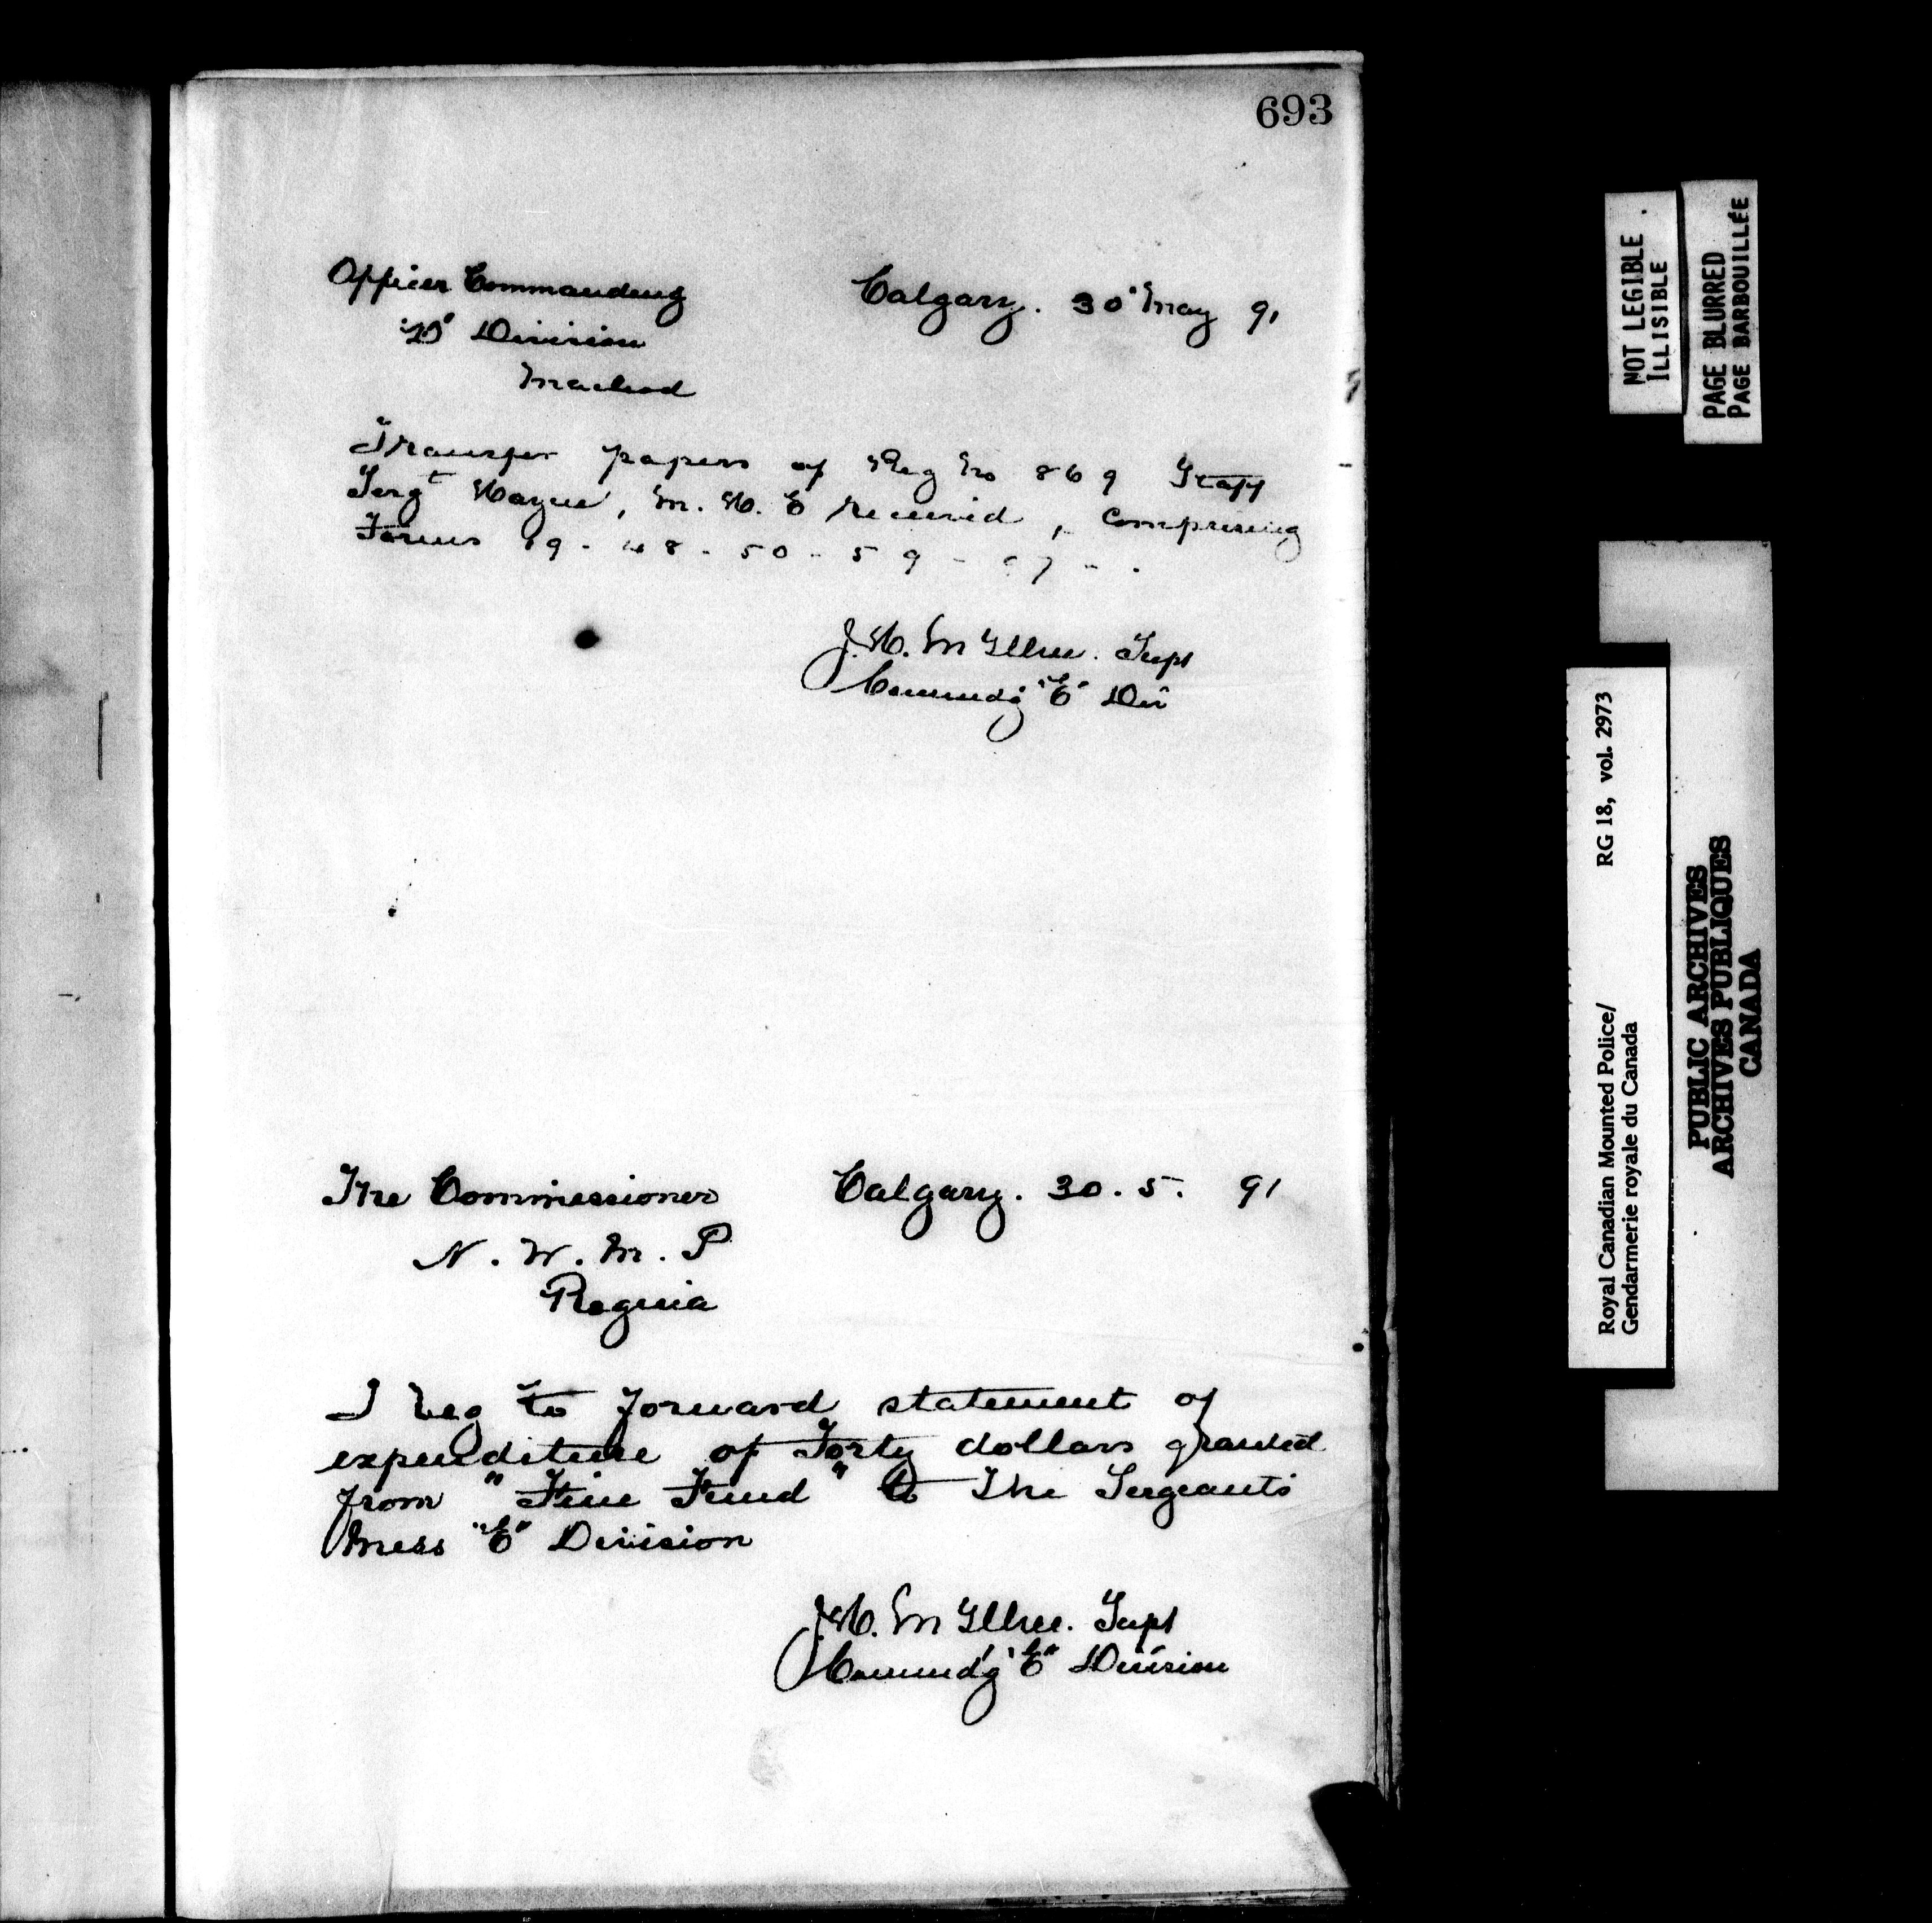 693
Officer Commanding
"D" Division
Macleod
Calgary. 30" May 91
Transfer papers of Reg No 869 Staff
Sergt Hayne, M. H. E received, comprising
Forms 19 - 48 - 50 - 59 -
J. H. McIllree. Supt
Commndg "E" Div
The Commissioner
N. W. M. P
Regina
Calgary. 30. 5. 91
I beg to forward statement of
expenditure of Forty dollars granted
from "Fine Fund" to The Sergeants
Mess "E" Division
J. H. McIllree. Supt
Commnd'g "E" Division
NOT LEGIBLE
ILLISIBLE
PAGE BLURRED
PAGE BARBOUILLÉE
RG 18, vol. 2973
Royal Canadian Mounted Police/
Gendarmerie royale du Canada
PUBLIC ARCHIVES
ARCHIVES PUBLIQUES
CANADA